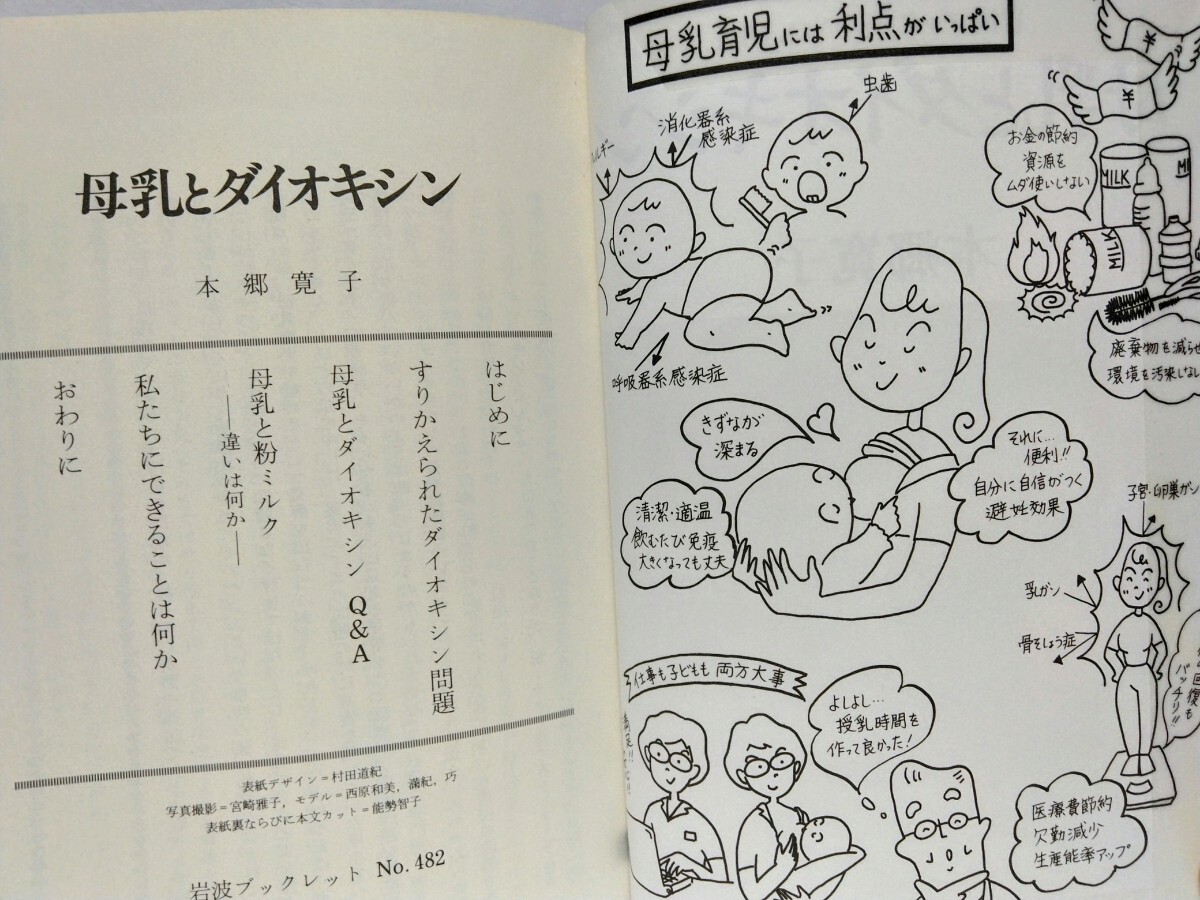 母乳とダイオキシン
本郷寛子
はじめに
すりかえられたダイオキシン問題
母乳とダイオキシン Q&A
母乳と粉ミルク
―違いは何か―
私たちにできることは何か
おわりに
表紙デザイン=村田道紀
写真撮影=宮崎雅子，モデル=西原和美，満紀，巧
表紙裏ならびに本文カット=能勢智子
岩波ブックレット No. 482
母乳育児には利点がいっぱい
虫歯
消化器系
感染症
ルギー
呼吸器系感染症
¥
¥
お金の節約
資源を
ムダ使いしない
MILK
MI
MILK
廃棄物を減らせ
環境を汚染しない
きずなが
深まる
それに…
便利!!
自分に自信がつく
避妊効果
清潔・適温
飲むたび免疫
大きくなっても丈夫
子宮・卵巣ガン
乳ガン
骨そしょう症
回復も
バッチリ!!
仕事も子どもも両方大事
よしよし…
授乳時間を
作って良かった!
医療費節約
欠勤減少
生産能率アップ